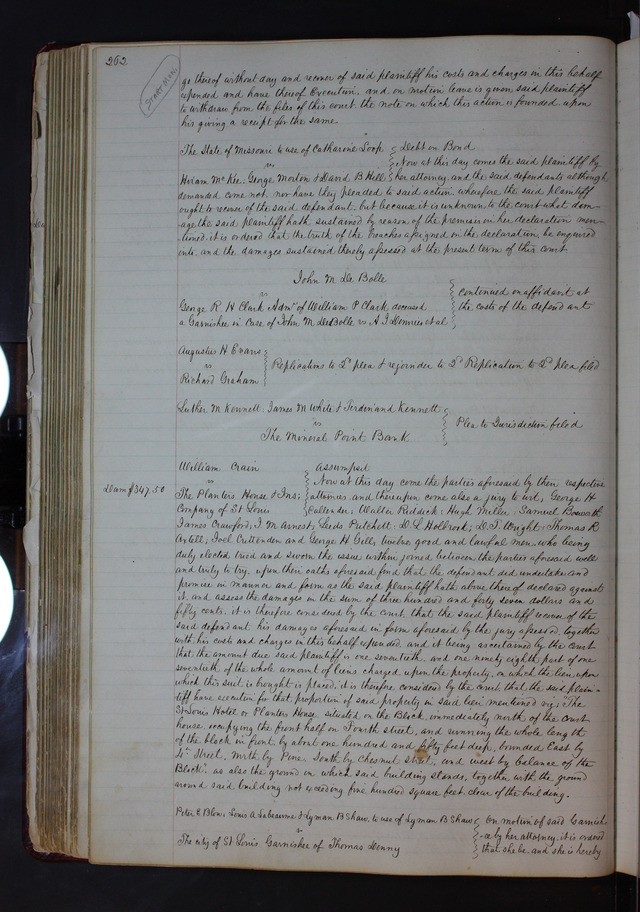 262
START HERE
go thereof without day and recover of said plaintiff his costs and charges in this behalf
expended and have thereof Execution. and on motion leave is given said plaintiff
to withdraw from the files of this court the note on which this action is founded upon
his giving a receipt for the same
The State of Missouri to use of Catharine Soop Debt on Bond
vs Now at this day comes the said plaintiff by
Hiram McKee, George Morton & David B Hill her attorney and the said defendants although
demanded come not nor have they pleaded to said action wherefore the said plaintiff
ought to recover of the said defendant. but because it is unknown to the court what dam-
age the said plaintiff hath sustained by reason of the premises in her declaration men-
tioned it is ordered that the truth of the breaches assigned in the declaration be enquired
into and the damages sustained thereby assessed at the present term of this court
John M De Bolle
vs continued on affidavit at
George R H Clark Admr of William P Clark deceased the costs of the defendant
a Garnishee in Case of John M DeBolle vs A J et al
Augustus H Evans
vs Replications to 2d plea & rejoinder to 2d Replication to 2d plea filed
Richard Graham
Luther M Kennett. James M White & Ferdinand Kennett
vs Plea to Jurisdiction filed
The Mineral Point Bank
William Crain assumpsit
vs Now at this day come the parties aforesaid by their respective
Dam $347.50 The Planters House & Ins: attornies. and thereupon come also a jury to wit, George H
Company of St Louis Callender, Walter Riddick, Hugh Miller, Samuel Bosworth
James Crawford, J. M Earnest, Leeds Pulchott, D. L Holbrook, D. T. Wright, Thomas R
Axtell, Joel Cruttenden and George H Gill, twelve good and lawful men, who being
duly elected tried and sworn the issue within joined between the parties aforesaid well
and truly to try, upon their oaths aforesaid find that the defendant did undertake and
promise in manner and form as the said plaintiff hath above thereof declared against
it. and assess the damages in the sum of three hundred and forty seven dollars and
fifty cents. it is therefore considered by the court that the said plaintiff recover of the
said defendant his damages aforesaid in form aforesaid by the jury assessed, together
with his costs and charges in this behalf expended, and it being ascertained by the Court
that the amount due said plaintiff is one seventieth, and one ninety eighth part of one
seventieth of the whole amount of liens charged upon the property, on which the lien, upon
which this suit is brought is placed, it is therefore considered by the court that the said plain-
tiff have execution for that proportion of said property in said lien mentioned viz: "The
St Louis Hotel or Planters House situated on the Block immediately north of the court
house occupying the front half on Fourth street, and running the whole length
of the block in front by about one hundred and fifty feet deep. bounded East by
4th Street, North by Pine, South by Chesnut street, and west by balance of the
Block", as also the ground on which said building stands, together with the ground
around said building not exceeding five hundred square feet clear of the building.
Peter E Blow, Louis A Labeaume & Lyman B Shaw to use of Lyman B Shaw On motion of said Garnish-
vs ee by her attorney, it is ordered
The city of St Louis Garnishee of Thomas Denny that she be and she is hereby